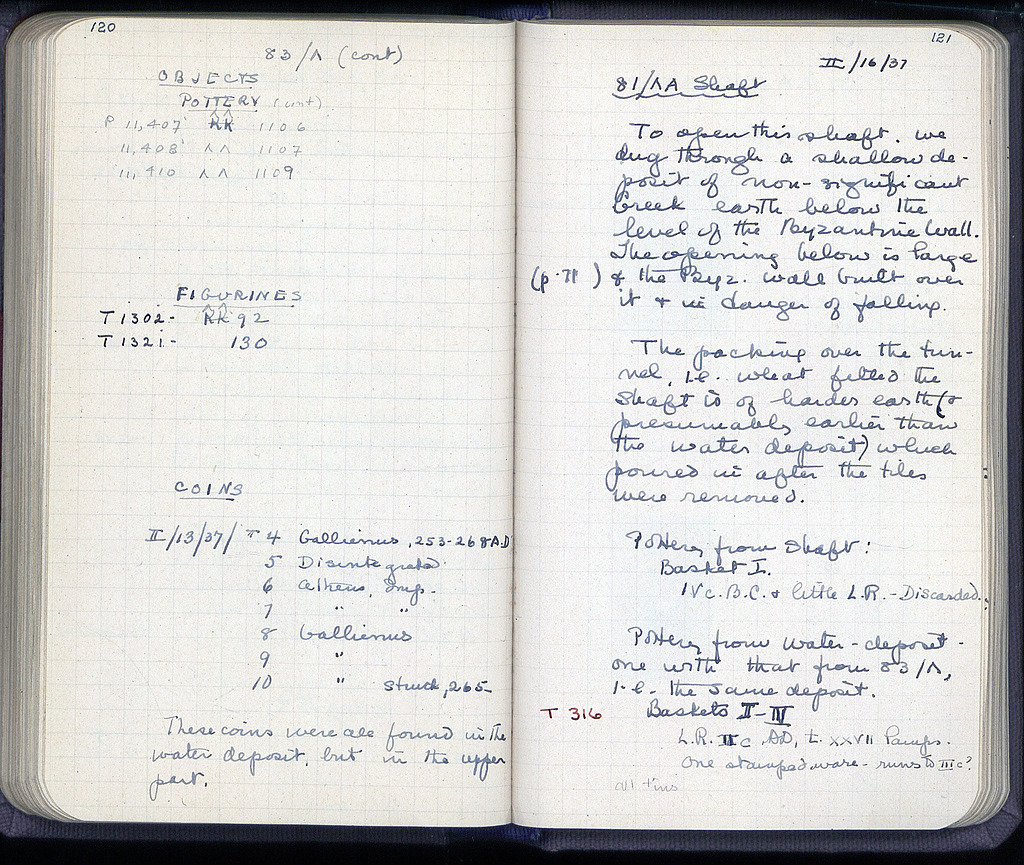 120
83/Λ (cont)
OBJECTS
POTTERY (cont)
P 11,407 K̂K̂ 1106
11,408 ΛΛ 1107
11,410 ΛΛ 1109
FIGURINES
T 1302- K̂K̂ 92
T 1321- 130
COINS
II/13/37/ T 4 Gallienus, 253-268 A.D
5 Disintegrated
6 Athens, Imp.
7 " "
8 Gallienus
9 "
10 " struck, 265-
These coins were all found in the
water deposit, but in the upper
part.
121
II/16/37
81/ΛΑ Shaft
To open this shaft. we
dug through a shallow de-
posit of non-significant
Greek earth below the
level of the Byzantine Wall.
The opening below is large
(p. 71) & the Byz. wall built over
it & in danger of falling.
The packing over the tun-
nel, i.e. what filled the
shaft is of harder earth (&
presumably earlier than
the water deposit) which
poured in after the tiles
were removed.
Pottery from Shaft:
Basket I.
IV c. B.C. & little L.R. - Discarded.
Pottery from water-deposit -
one with that from 83/Λ,
i.e. the same deposit.
T 316 Baskets II-IV
L.R. II c. AD, t. XXVII lamps.
One stamped ware - runs to III c?
all tins